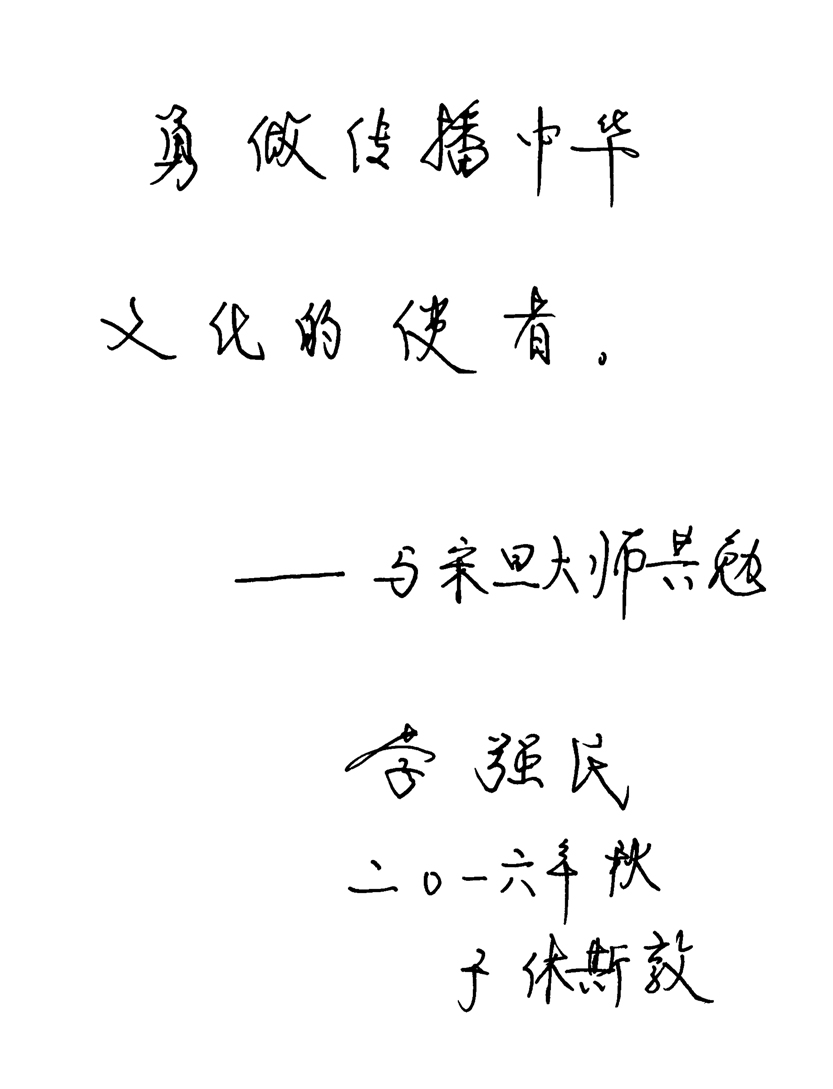 勇做传播中华
文化的使者。
——与宋旦大师共勉
李强民
二〇一六年秋
于休斯敦